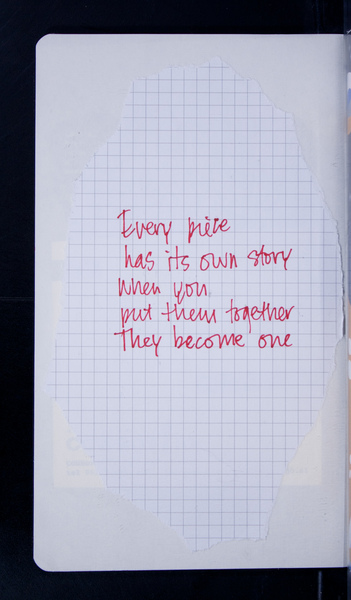 Every piece
has its own story
when you
put them together
they become one